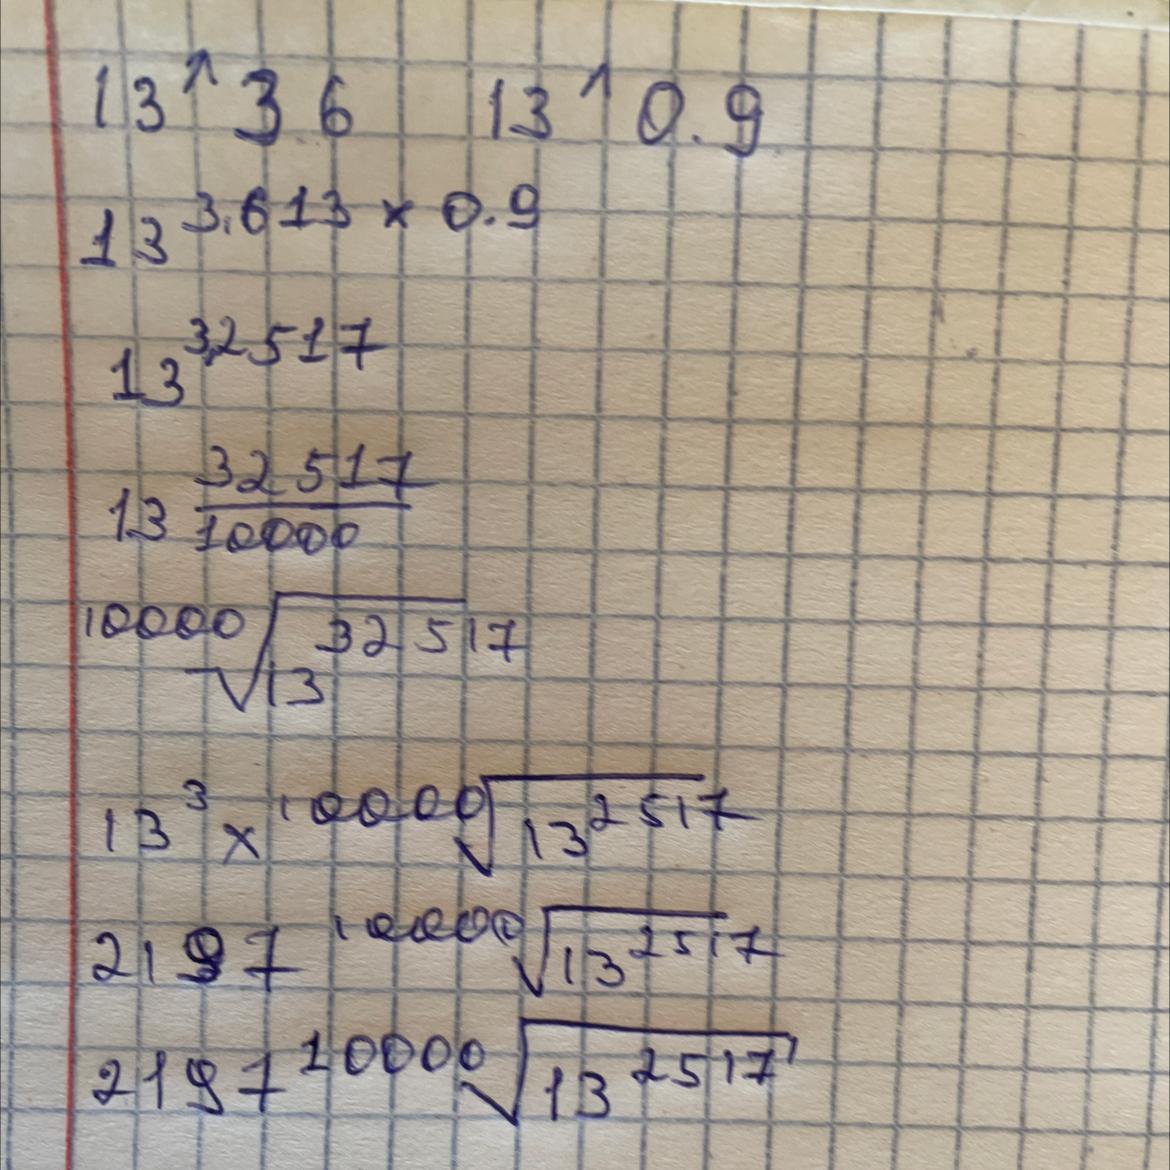 13^3.6 13^0.9
13^3.613 × 0.9
13^3,2517
13^32517/10000
10000√13^32517
13^3 × 10000√13^2517
2197 10000√13^2517
2197 10000√13^2517